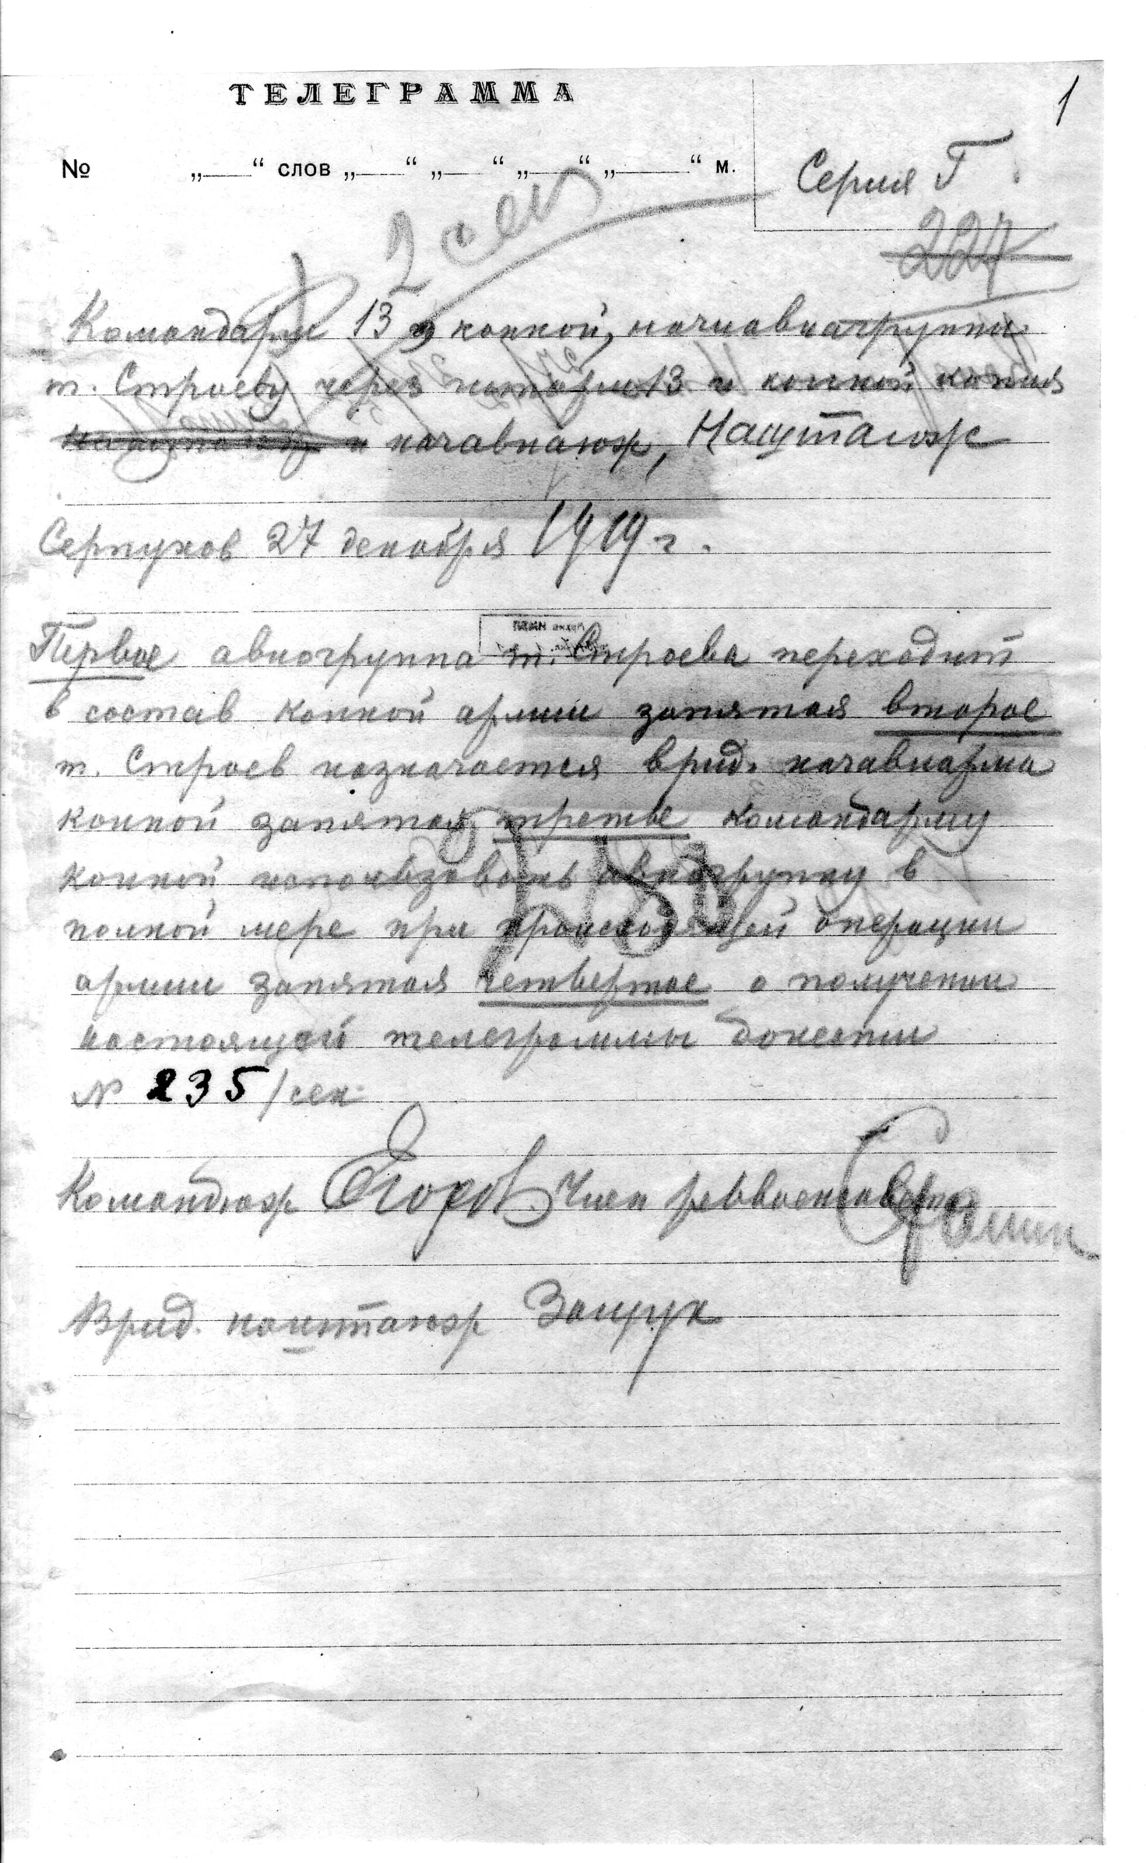 1
ТЕЛЕГРАММА
№ „ “ слов „ “ „ “ „ “ „ “ м.
Серия Г.
227
2 сек
Командарм 13 и конной, начиавиагруппы
т. Строеву через наштарм 13 и конной копия
и начавиаюж, Наштаюж
Серпухов 27 декабря 1919 г.
Первое авиогруппа т. Строева переходит
в состав конной армии запятая второе
т. Строев назначается врид. начавиарма
конной запятая третье командарму
конной использовать авиогруппу в
полной мере при происходящей операции
армии запятая четвертое о получении
настоящей телеграммы донести
№ 235/сек.
Командюж Егоров. Член реввоенсовета
Врид. наштаюж Защук